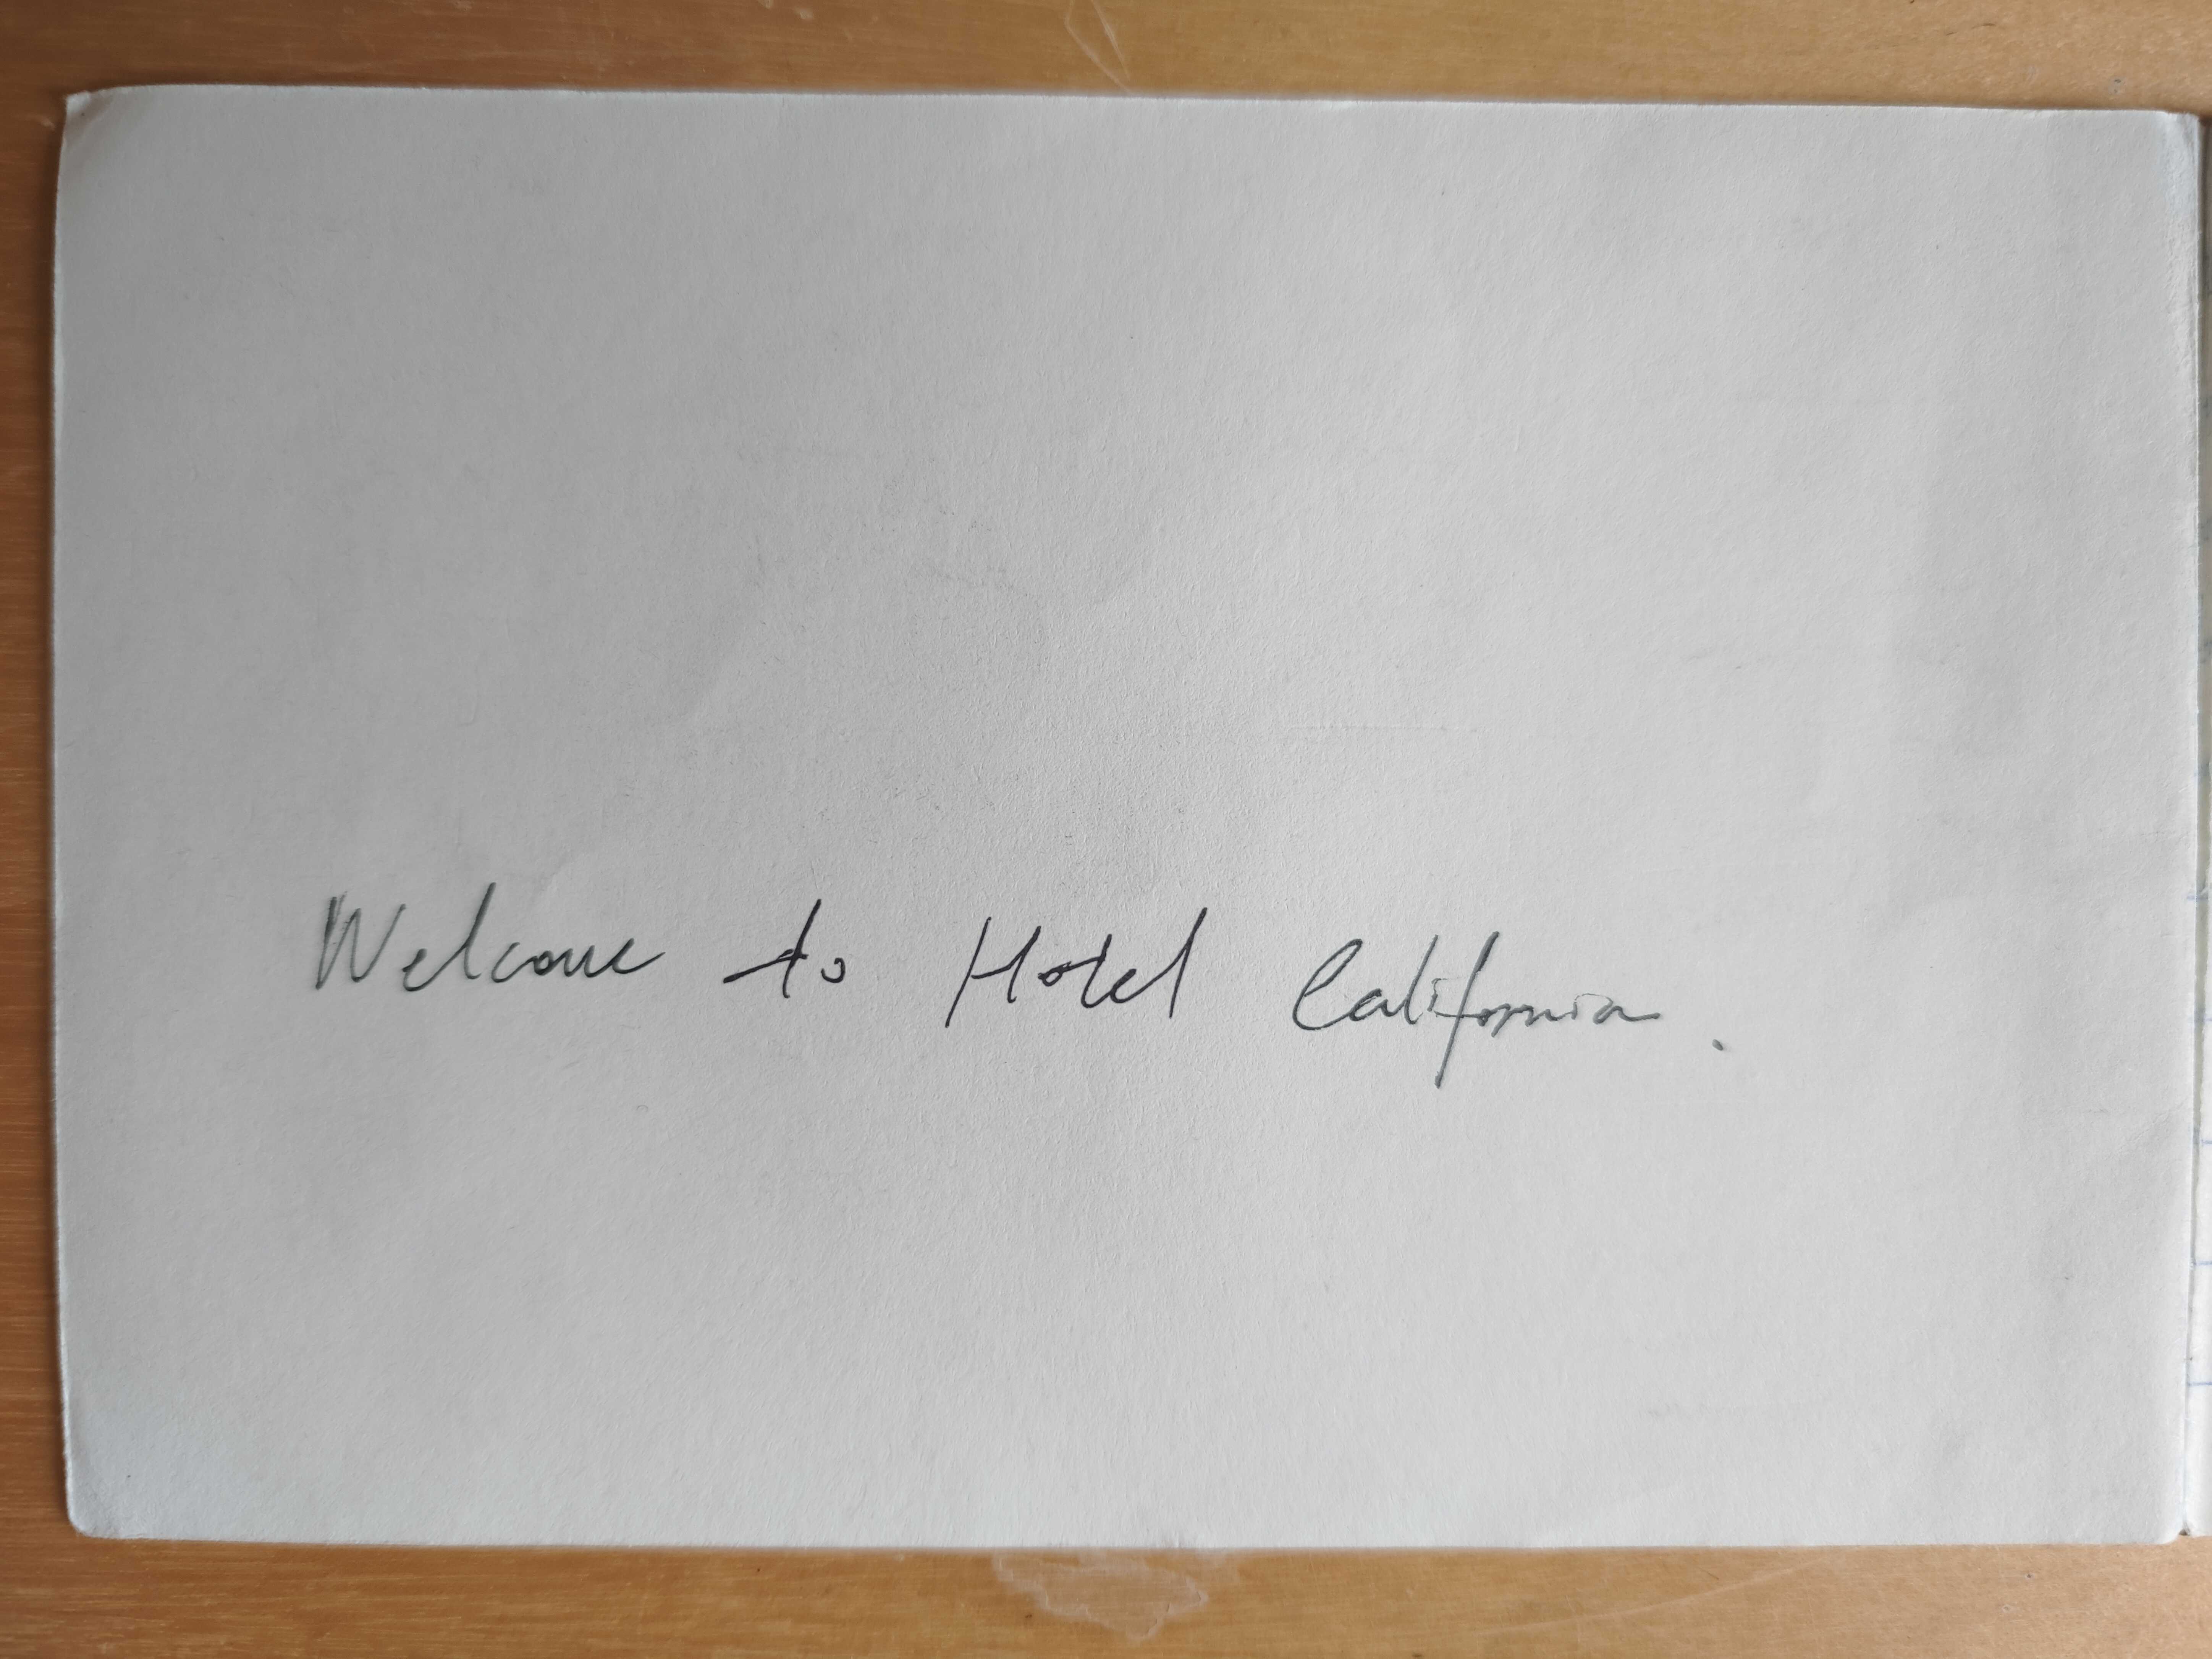 Welcome to Hotel California.